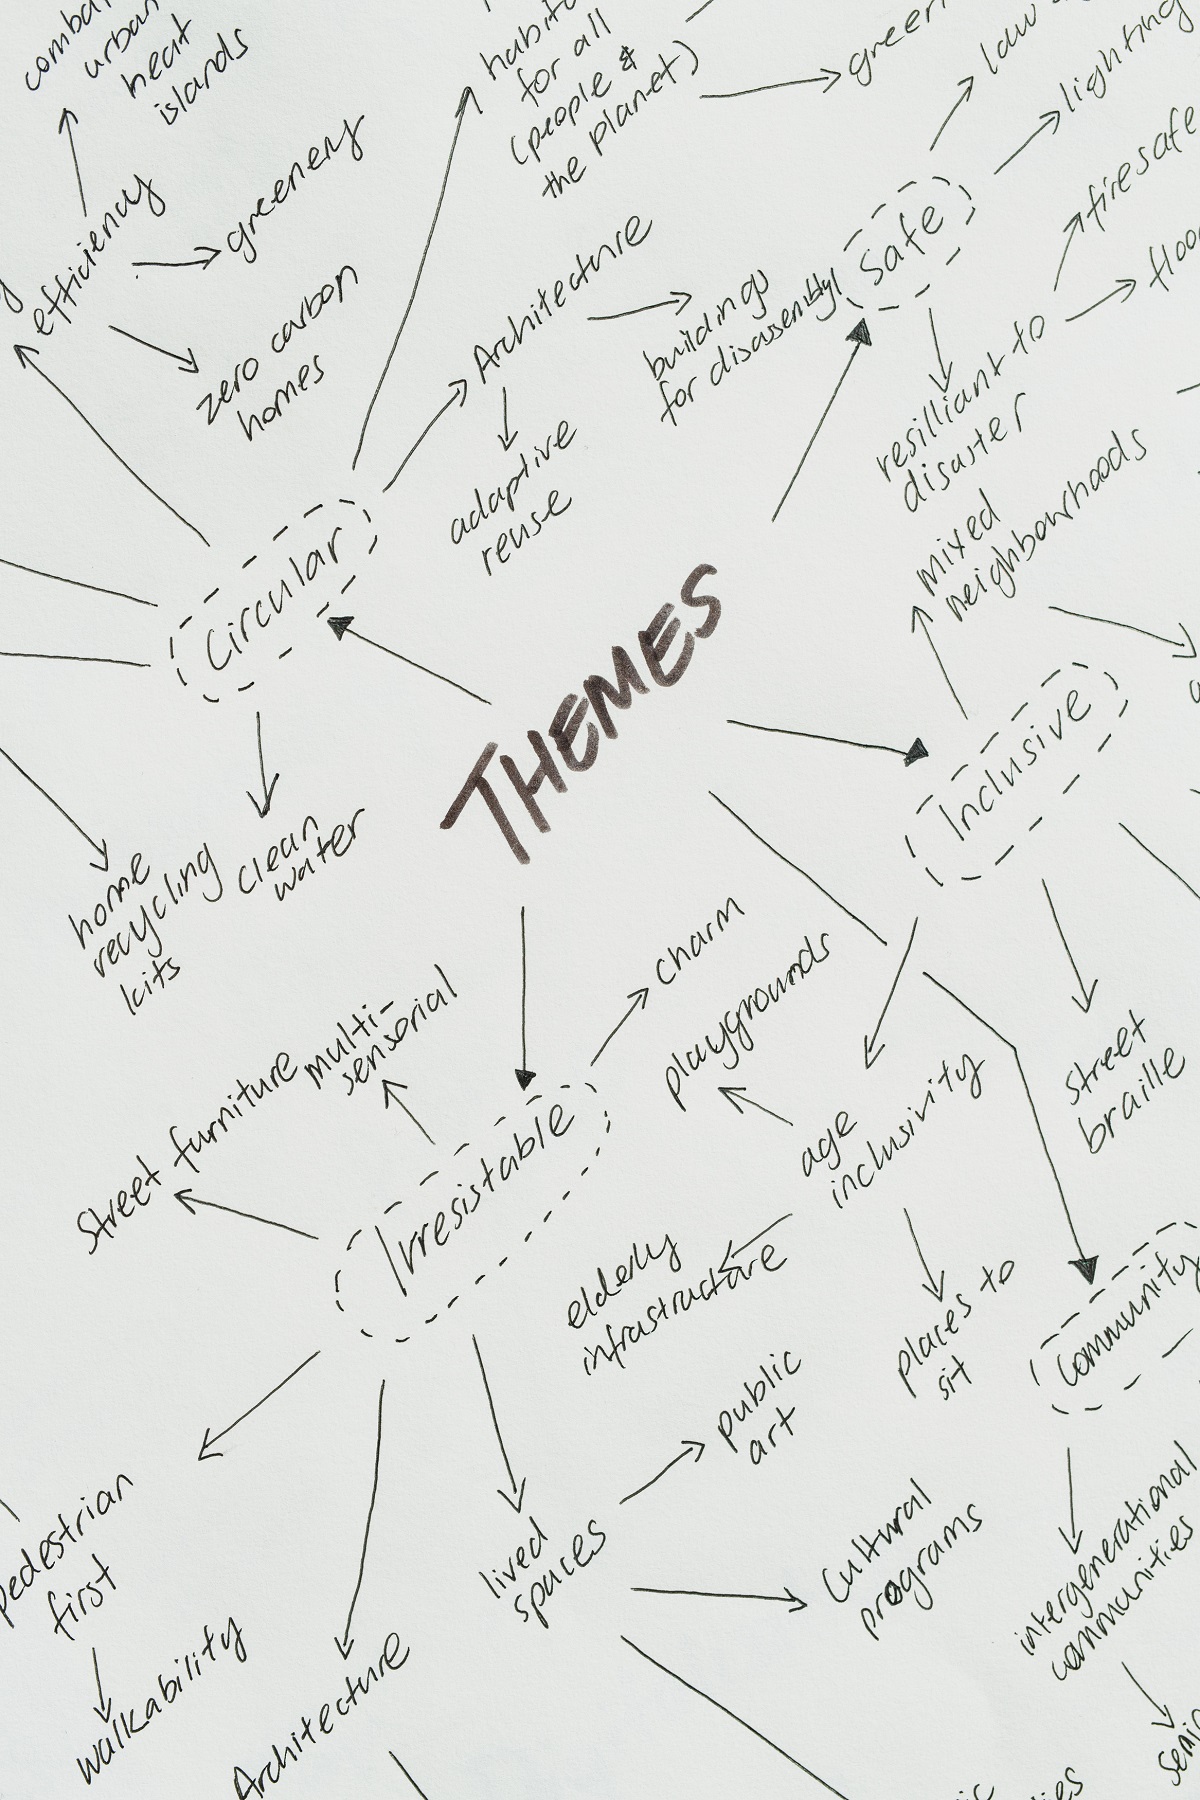 urban
heat
islands
efficiency
greenery
zero carbon
homes
for all
(people &
the planet)
Architecture
buildings
for disassembly
adaptive
reuse
Safe
lighting
firesafe
resilliant to
disaster
Circular
clean
water
home
recycling
kits
THEMES
mixed
neighbourhoods
Inclusive
street
braille
age
inclusivity
playgrounds
elderly
infrastructure
places to
sit
Irresistable
charm
multi-
sensorial
Street furniture
pedestrian
first
walkability
Architecture
lived
spaces
public
art
Cultural
programs
Community
intergenerational
communities